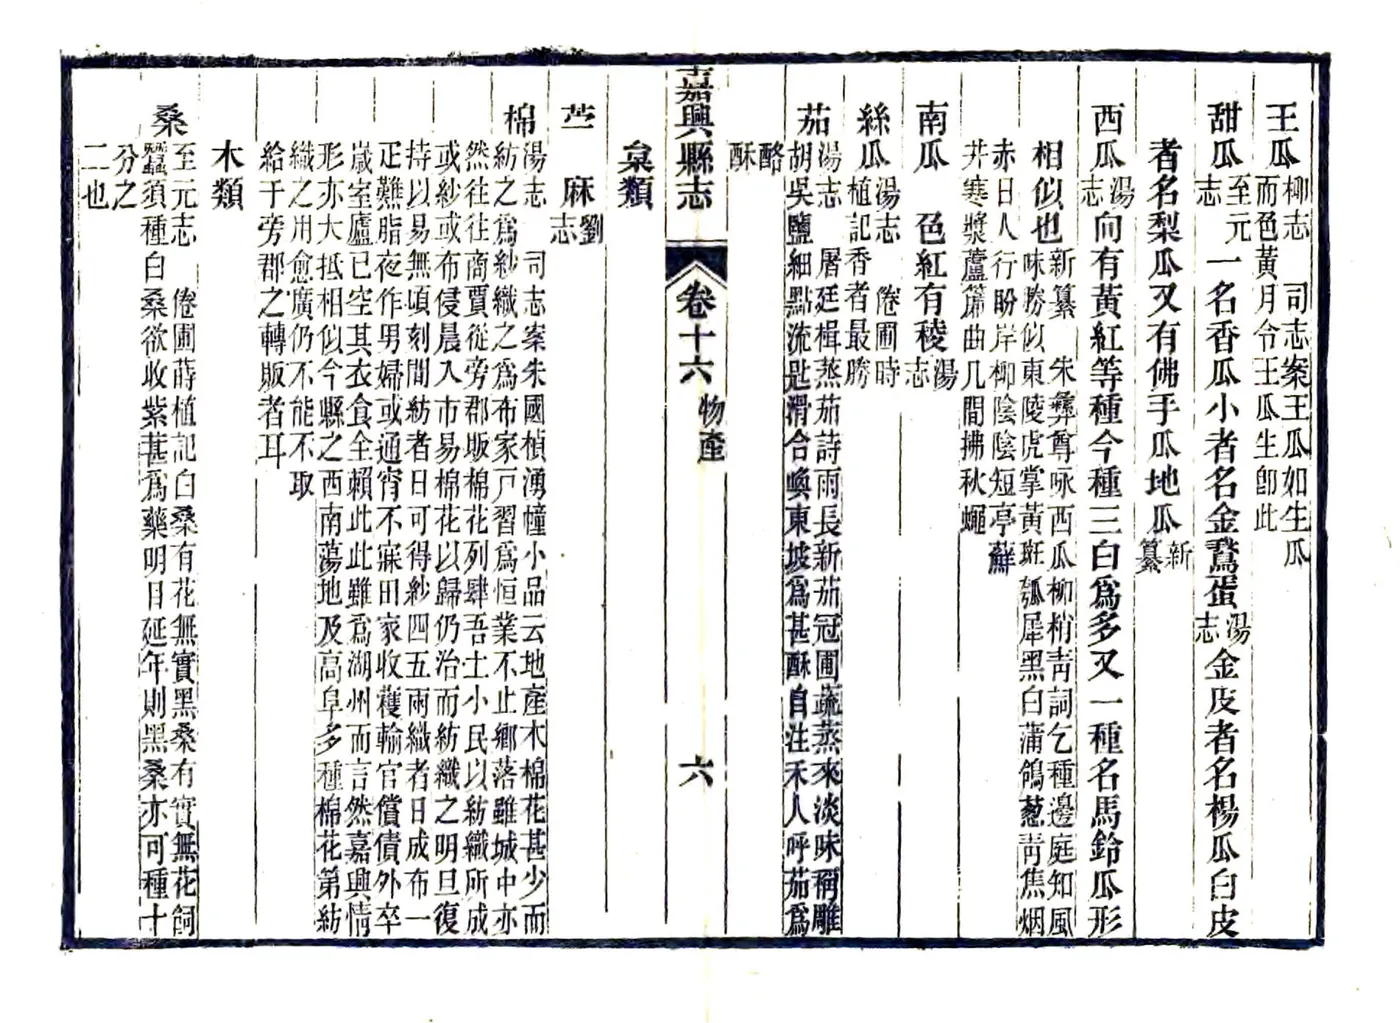 王瓜柳志　司志案王瓜如生瓜
而色黃月令王瓜生卽此
甜瓜至元志一名香瓜小者名金鵞蛋湯志金皮者名楊瓜白皮
者名梨瓜又有佛手瓜地瓜新纂
西瓜湯志向有黃紅等種今種三白爲多又一種名馬鈴瓜形
相似也新纂　朱彝尊咏西瓜柳梢靑詞乞種邊庭知風
味勝似東陵虎掌黃斑瓠犀黑白蒲鴿葱靑焦烟
赤日人行盼岸柳陰陰短亭蘚
井寒漿蘆簾曲几間拂秋蠅
南瓜　色紅有稜湯志
絲瓜湯志　倦圃時
植記香者最勝
茄湯志　屠廷楫蒸茄詩雨長新茄冠圃蔬蒸來淡味稱雕
胡吳鹽細點流匙滑合喚東坡爲甚酥自注禾人呼茄爲
酪
酥
嘉興縣志　卷十六　物產　六
枲類
苎麻劉志
棉湯志　司志案朱國楨湧幢小品云地產木棉花甚少而
紡之爲紗織之爲布家戶習爲恒業不止鄉落雖城中亦
然往往商賈從旁郡販棉花列肆吾土小民以紡織所成
或紗或布侵晨入市易棉花以歸仍治而紡織之明旦復
持以易無頃刻間紡者日可得紗四五兩織者日成布一
疋難脂夜作男婦或通宵不寐田家收穫輸官償債外卒
歲室廬已空其衣食全賴此此雖爲湖州而言然嘉興情
形亦大抵相似今縣之西南蕩地及高阜多種棉花第紡
織之用愈廣仍不能不取
給于旁郡之轉販者耳
木類
桑至元志　倦圃蒔植記白桑有花無實黑桑有實無花飼
蠶須種白桑欲收紫葚爲藥明目延年則黑桑亦可種十
分之
二也